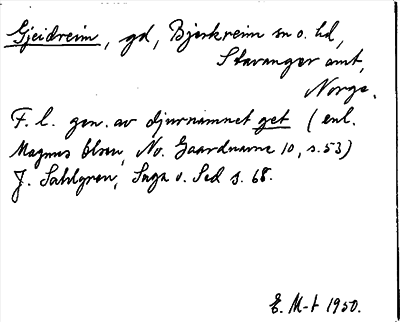 Gjeidreim, gd, Bjerkreim sn o. hd,
Stavanger amt,
Norge.
F. l. gen. av djurnamnet get (enl.
Magnus Olsen, No. Gaardnavne 10, s. 53)
J. Sahlgren, Saga o. Sed s. 68.
E. M-t 1950.